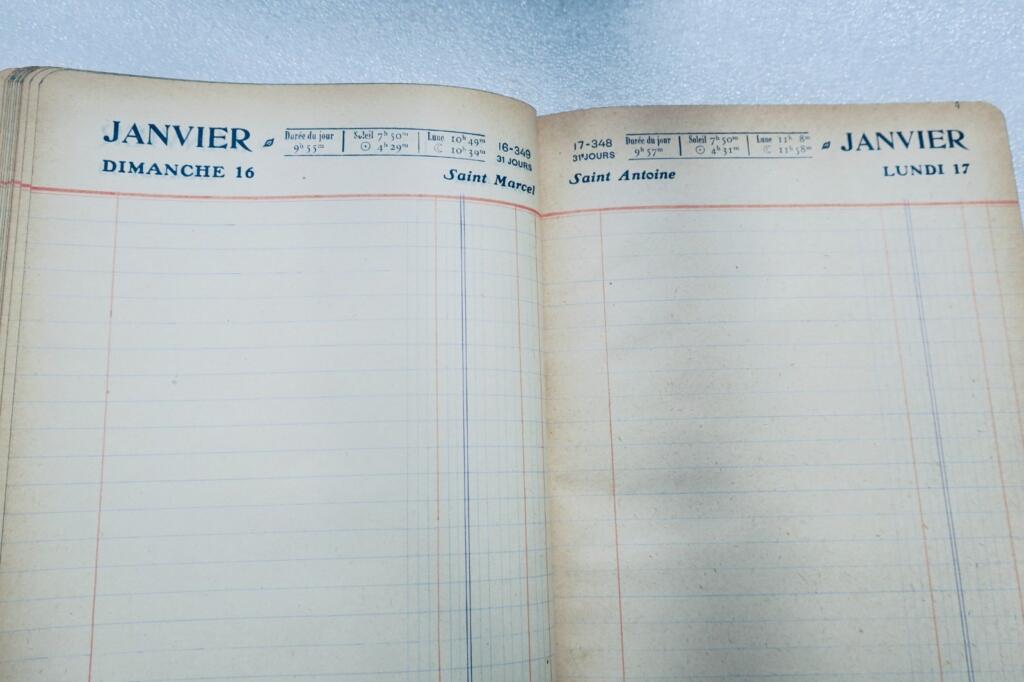 JANVIER
DIMANCHE 16
Durée du jour
9ʰ 55ᵐ
Soleil 7ʰ 50ᵐ
☉ 4ʰ 29ᵐ
Lune 10ʰ 49ᵐ
☾ 10ʰ 39ᵐ
16-349
31 JOURS
Saint Marcel
17-348
31 JOURS
Saint Antoine
Durée du jour
9ʰ 57ᵐ
Soleil 7ʰ 50ᵐ
☉ 4ʰ 31ᵐ
Lune 11ʰ 8ᵐ
☾ 11ʰ 58ᵐ
JANVIER
LUNDI 17